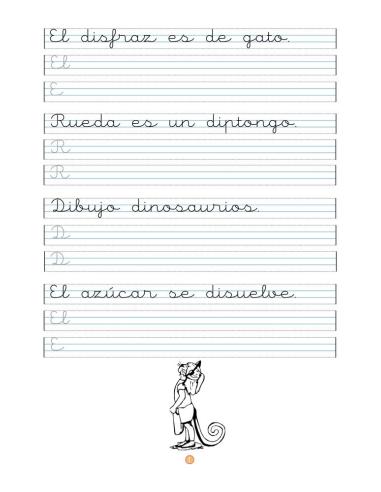 El disfraz es de gato.
El
E
Rueda es un diptongo.
R
R
Dibujo dinosaurios.
D
D
El azúcar se disuelve.
El
E